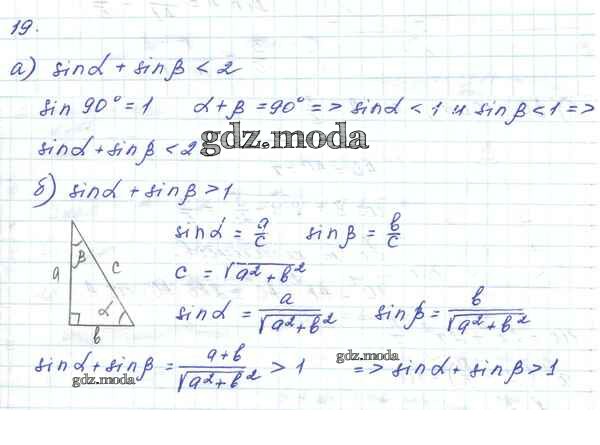 19.
а) sinα + sinβ < 2
sin 90° = 1 α + β = 90° => sinα < 1 и sinβ < 1 =>
sinα + sinβ < 2
gdz.moda
б) sinα + sinβ > 1
sinα = a/c sinβ = b/c
c = √a²+b²
sinα = a/√a²+b² sinβ = b/√a²+b²
a β c α b
sinα + sinβ = a+b/√a²+b² > 1 => sinα + sinβ > 1
gdz.moda
gdz.moda